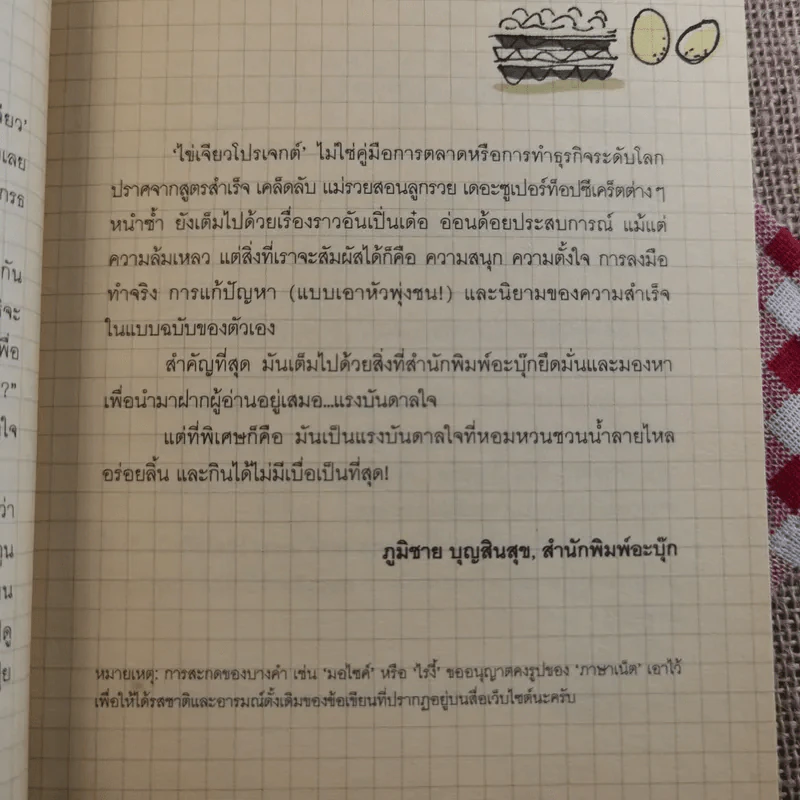 'ไข่เจียวโปรเจกต์' ไม่ใช่คู่มือการตลาดหรือการทำธุรกิจระดับโลก
ปราศจากสูตรสำเร็จ เคล็ดลับ แม่รวยสอนลูกรวย เดอะซูเปอร์ท็อปซีเคร็ตต่างๆ
หนำซ้ำ ยังเต็มไปด้วยเรื่องราวอันเปิ่นเด๋อ อ่อนด้อยประสบการณ์ แม้แต่
ความล้มเหลว แต่สิ่งที่เราจะสัมผัสได้ก็คือ ความสนุก ความตั้งใจ การลงมือ
ทำจริง การแก้ปัญหา (แบบเอาหัวพุ่งชน!) และนิยามของความสำเร็จ
ในแบบฉบับของตัวเอง
สำคัญที่สุด มันเต็มไปด้วยสิ่งที่สำนักพิมพ์อะบุ๊กยึดมั่นและมองหา
เพื่อนำมาฝากผู้อ่านอยู่เสมอ...แรงบันดาลใจ
แต่ที่พิเศษก็คือ มันเป็นแรงบันดาลใจที่หอมหวนชวนน้ำลายไหล
อร่อยลิ้น และกินได้ไม่มีเบื่อเป็นที่สุด!
ภูมิชาย บุญสินสุข, สำนักพิมพ์อะบุ๊ก
หมายเหตุ: การสะกดของบางคำ เช่น 'มอไซค์' หรือ 'ไรงี้' ขออนุญาตคงรูปของ 'ภาษาเน็ต' เอาไว้
เพื่อให้ได้รสชาติและอารมณ์ดั้งเดิมของข้อเขียนที่ปรากฏอยู่บนสื่อเว็บไซต์นะครับ